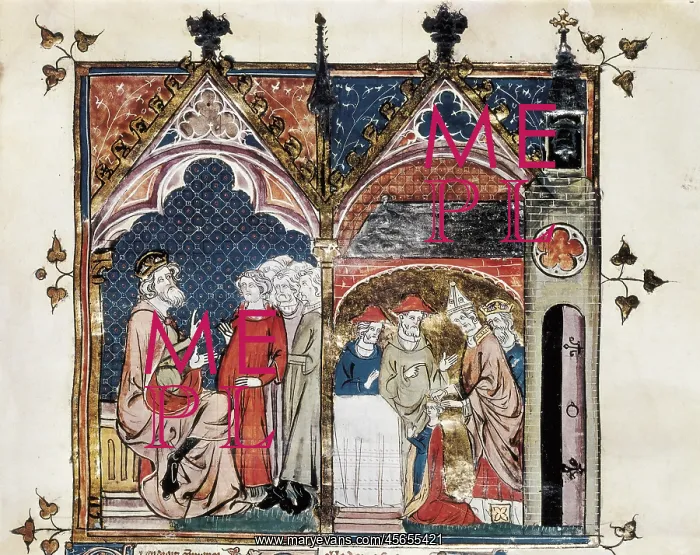 ME
PL
ME
PL
www.maryevans.com/45655421